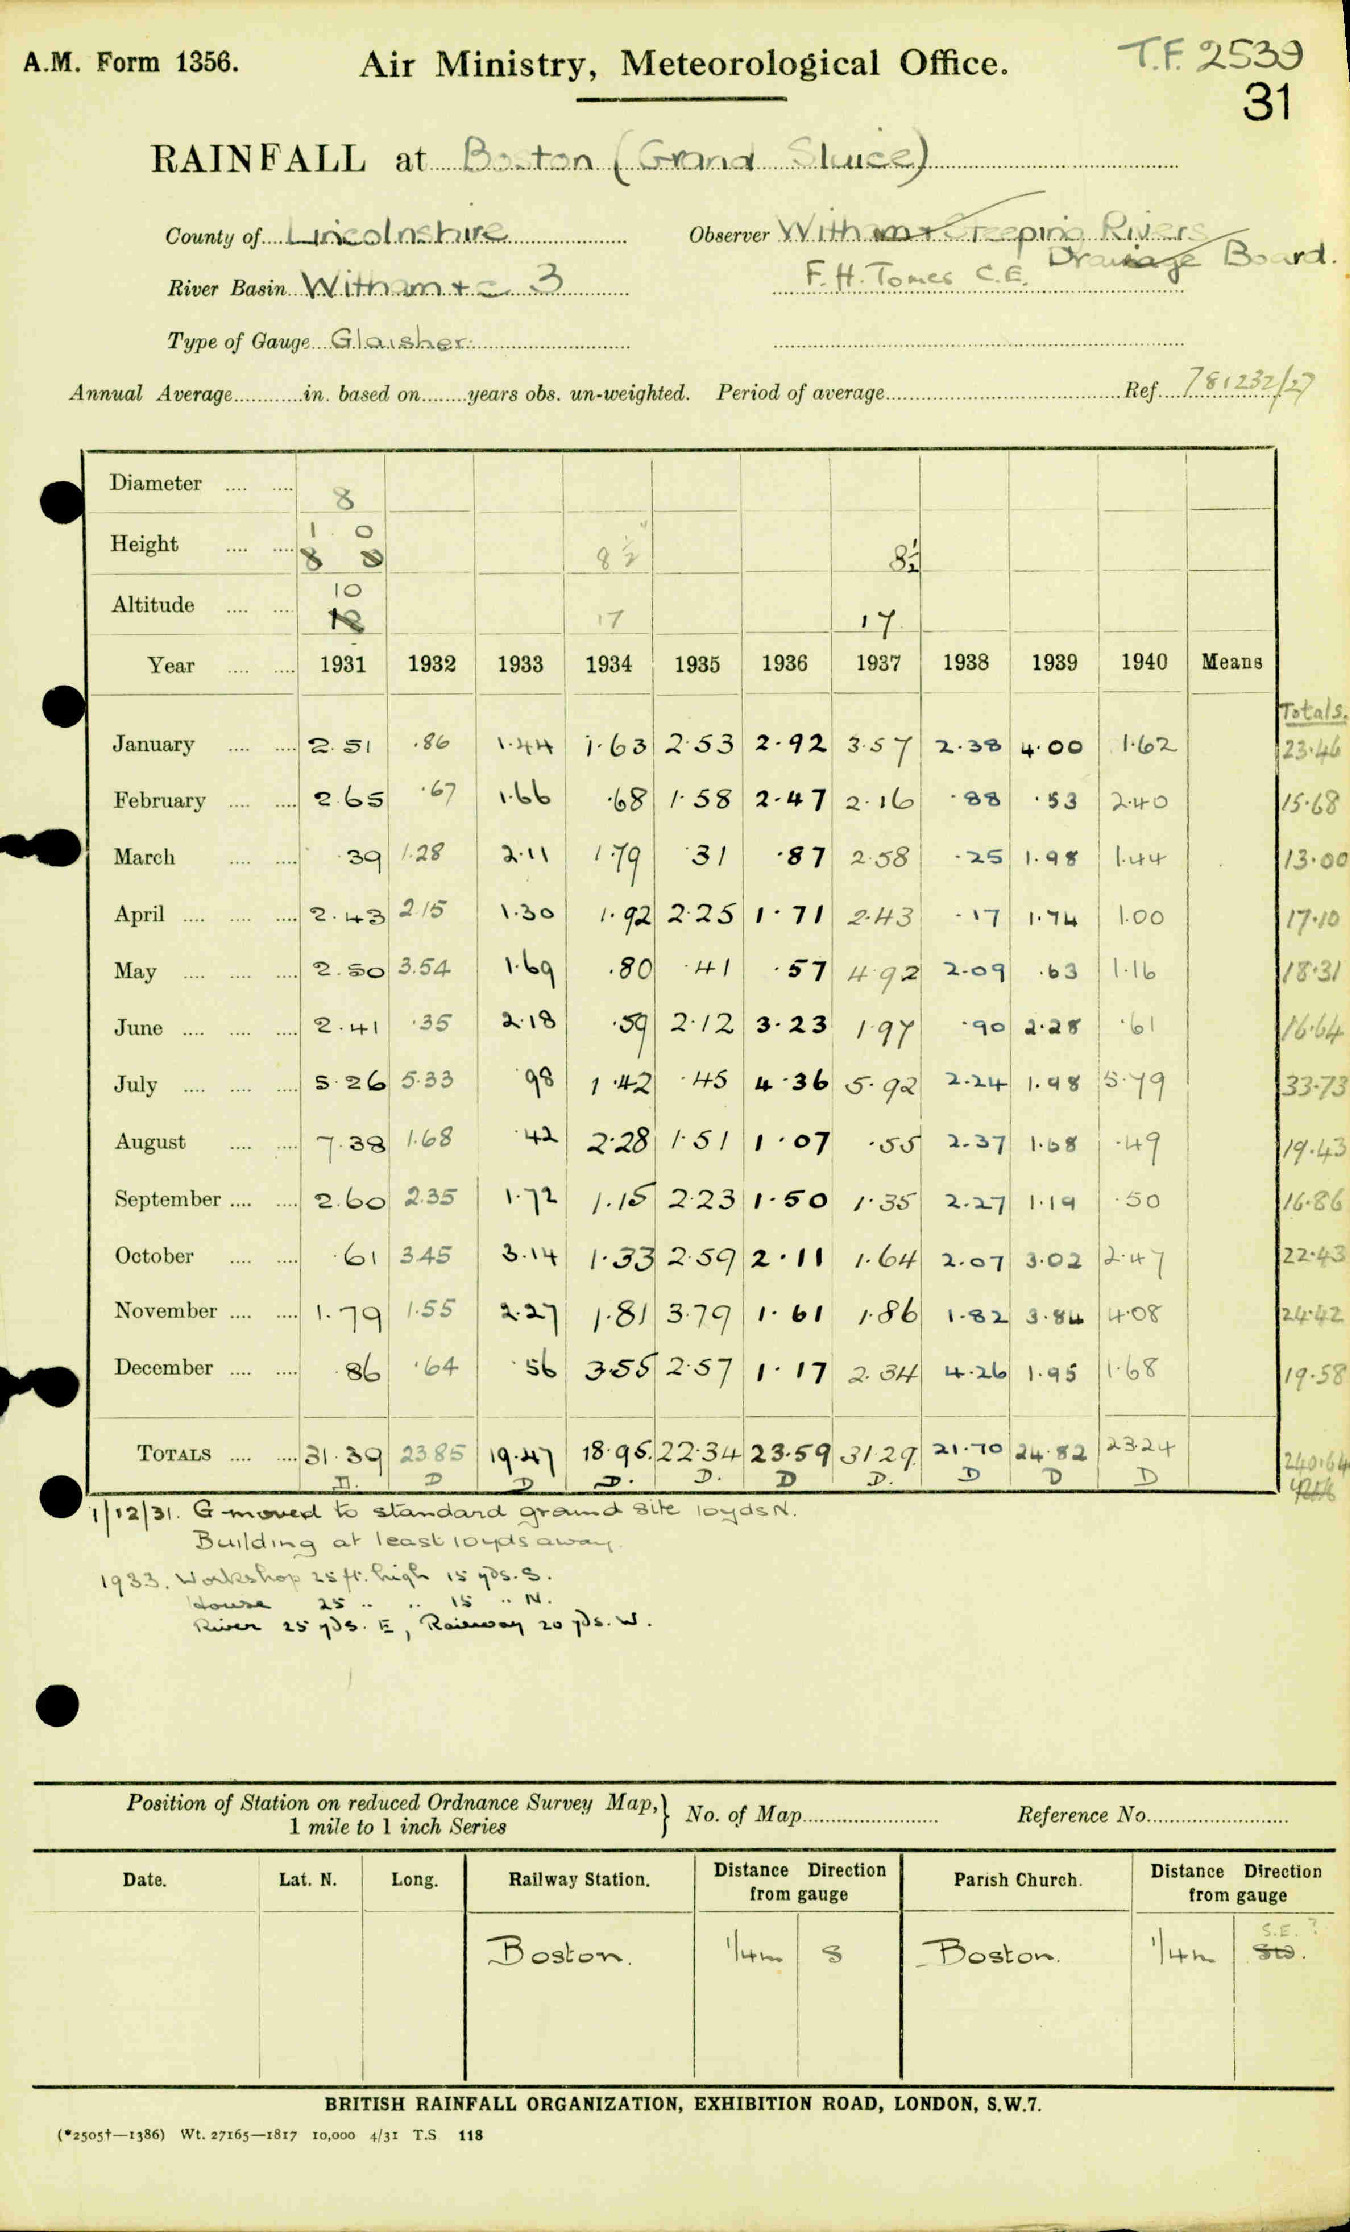 A.M. Form 1356. Air Ministry, Meteorological Office. T.F. 2539
31
RAINFALL at Boston (Grand Sluice)
County of Lincolnshire Observer Witham + Steeping Rivers
Drainage Board.
River Basin Witham + c 3 F.H. Tomes C.E.
Type of Gauge Glaisher
Annual Average in. based on years obs. un-weighted. Period of average Ref. 781232/27
Diameter 8
Height 1 0 8 0 8½" 8½
Altitude 10 17 17
Year 1931 1932 1933 1934 1935 1936 1937 1938 1939 1940 Means
Totals.
January 2.51 .86 1.44 1.63 2.53 2.92 3.57 2.38 4.00 1.62 23.46
February 2.65 .67 1.66 .68 1.58 2.47 2.16 .88 .53 2.40 15.68
March .39 1.28 2.11 1.79 .31 .87 2.58 .25 1.98 1.44 13.00
April 2.43 2.15 1.30 1.92 2.25 1.71 2.43 .17 1.74 1.00 17.10
May 2.50 3.54 1.69 .80 .41 .57 4.92 2.09 .63 1.16 18.31
June 2.41 .35 2.18 .59 2.12 3.23 1.97 .90 2.28 .61 16.64
July 5.26 5.33 .98 1.42 .45 4.36 5.92 2.24 1.98 5.79 33.73
August 7.38 1.68 .42 2.28 1.51 1.07 .55 2.37 1.68 .49 19.43
September 2.60 2.35 1.72 1.15 2.23 1.50 1.35 2.27 1.19 .50 16.86
October .61 3.45 3.14 1.33 2.59 2.11 1.64 2.07 3.02 2.47 22.43
November 1.79 1.55 2.27 1.81 3.79 1.61 1.86 1.82 3.84 4.08 24.42
December .86 .64 .56 3.55 2.57 1.17 2.34 4.26 1.95 1.68 19.58
TOTALS 31.39 23.85 19.47 18.95. 22.34 23.59 31.29 21.70 24.82 23.24 240.64
D. D D D. D. D D. D D D
1/12/31. G moved to standard ground site 10yds N.
Building at least 10yds away.
1933. Workshop 25 ft. high 15 yds. S.
House 25 " " 15 " N.
River 25 yds. E, Railway 20 yds. W.
Position of Station on reduced Ordnance Survey Map, } No. of Map Reference No.
1 mile to 1 inch Series
Date. Lat. N. Long. Railway Station. Distance Direction from gauge Parish Church. Distance Direction from gauge
S.E. ?
Boston. 1/4m S Boston. 1/4m SW.
BRITISH RAINFALL ORGANIZATION, EXHIBITION ROAD, LONDON, S.W.7.
(*2505†—1386) Wt. 27165—1817 10,000 4/31 T.S 118